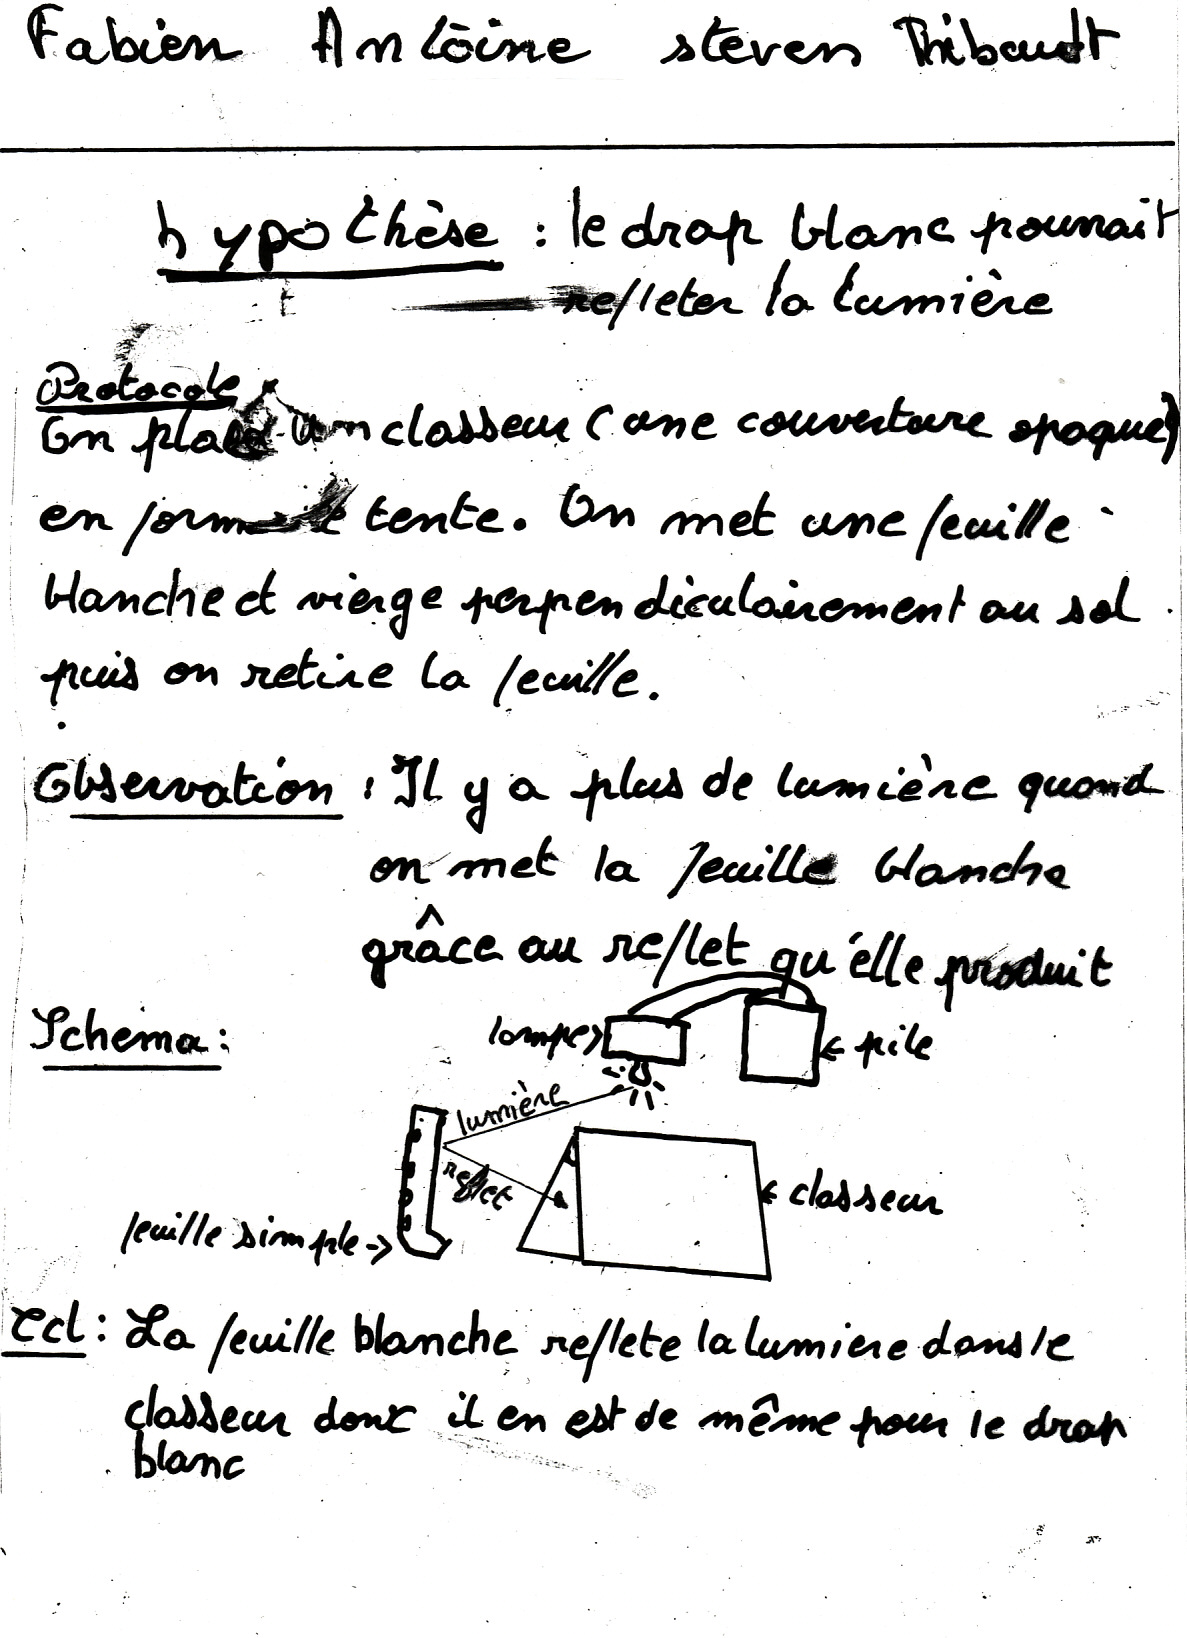 Fabien Antoine steven Thibault
hypothèse : le drap blanc pourrait
refleter la lumière
Protocole
On place un classeur (une couverture opaque)
en forme de tente. On met une feuille
blanche et vierge perpendiculairement au sol
puis on retire la feuille.
Observation : Il y a plus de lumière quand
on met la feuille blanche
grâce au reflet qu'elle produit
Schema :
lampe
pile
lumière
reflet
classeur
feuille simple
Ccl : La feuille blanche reflete la lumiere dans le
classeur donc il en est de même pour le drap
blanc